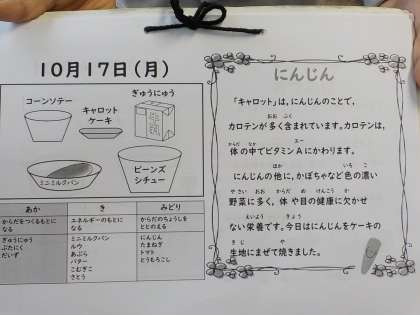 10月17日(月)
コーンソテー
キャロット
ケーキ
ぎゅうにゅう
ミニミルクパン
ビーンズ
シチュー
あか
き
みどり
からだをつくるもとに
なる
エネルギーのもとに
なる
からだのちょうしを
ととのえる
ぎゅうにゅう
ぶたにく
だいず
ミニミルクパン
ルウ
あぶら
バター
こむぎこ
さとう
にんじん
たまねぎ
トマト
とうもろこし
にんじん
「キャロット」は，にんじんのことで，
おお ふく
カロテンが多く含まれています。カロテンは，
からだ なか エー
体の中でビタミンAにかわります。
ほか いろ こ
にんじんの他に，かぼちゃなど色の濃い
やさい おお からだ め けんこう か
野菜に多く，体や目の健康に欠かせ
えいよう きょう
ない栄養です。今日はにんじんをケーキの
きじ や
生地にまぜて焼きました。